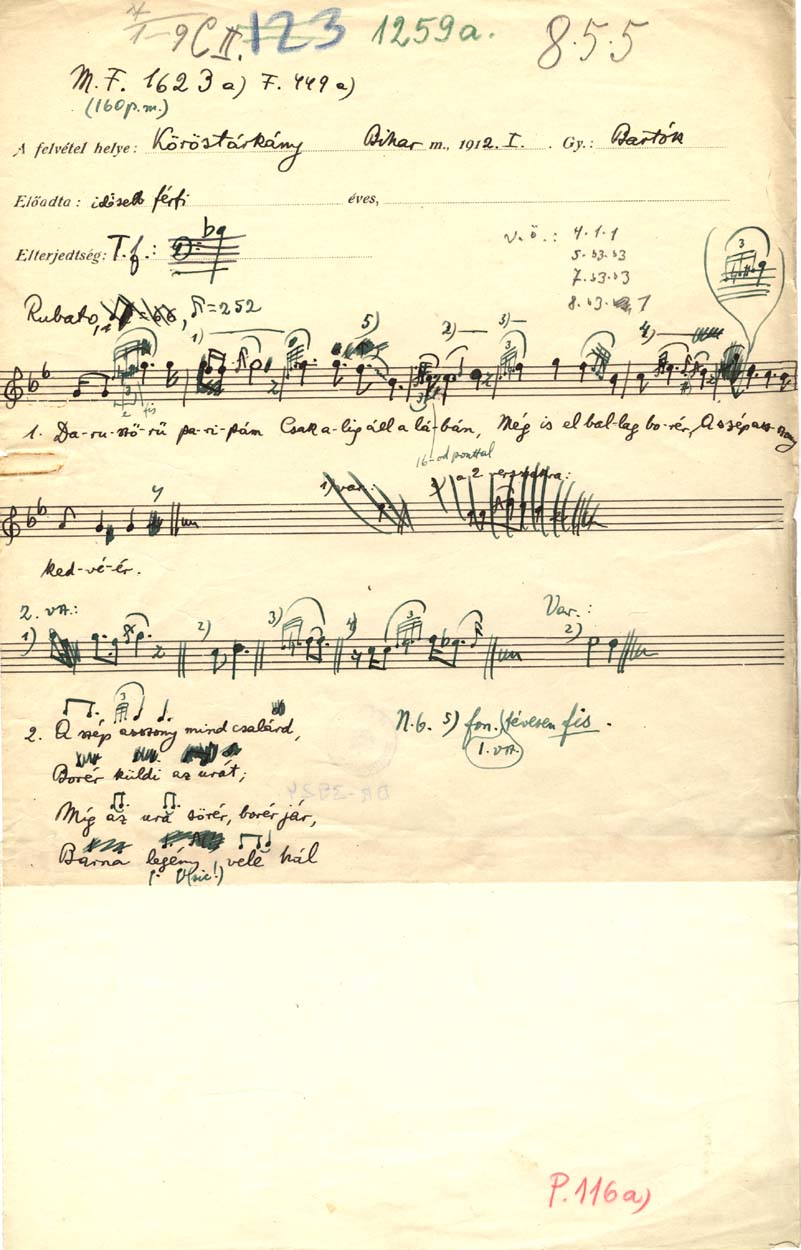 C II. 123 1259a. 8.5.5
M. F. 1623 a) F. 449 a)
(160 p.m.)
A felvétel helye: Köröstárkány Bihar m., 1912. I. Gy.: Bartók
Előadta: idősebb férfi éves,
Elterjedtség: T. f.:
v. ö.: 4.1.1
5.b3.b3
7.b3.b3
8.b3. 1
Rubato, ♪=252
1) 5) 2) 3) 4)
1. Da-ru-ször-rű pa-ri-pám Csak a-lig áll a lá-bán, Még is el bal-lag bo-rér, A szép asz-szony
16-od ponttal
1) var. a 2 versszakra:
ked-vé-ér.
2. vsz.: Var.:
1) 2) 3) 4) 2)
2. A szép asszony mind csalárd,
Borér küldi az urát;
Míg az ura sörér, borér jár,
Barna legény velé hál
(sic!)
N.b. 5) fon. tévesen fis.
1. vsz.
DR-3924
P. 116a)